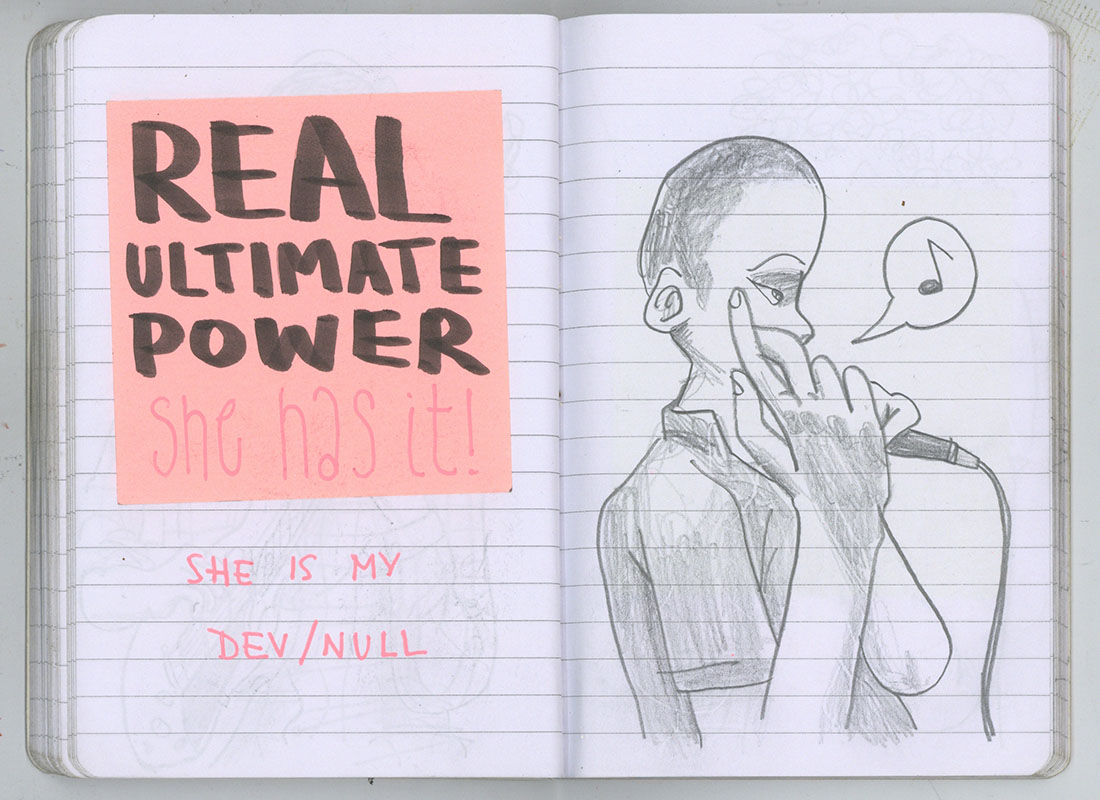 REAL
ULTIMATE
POWER
she has it!
SHE IS MY
DEV/NULL